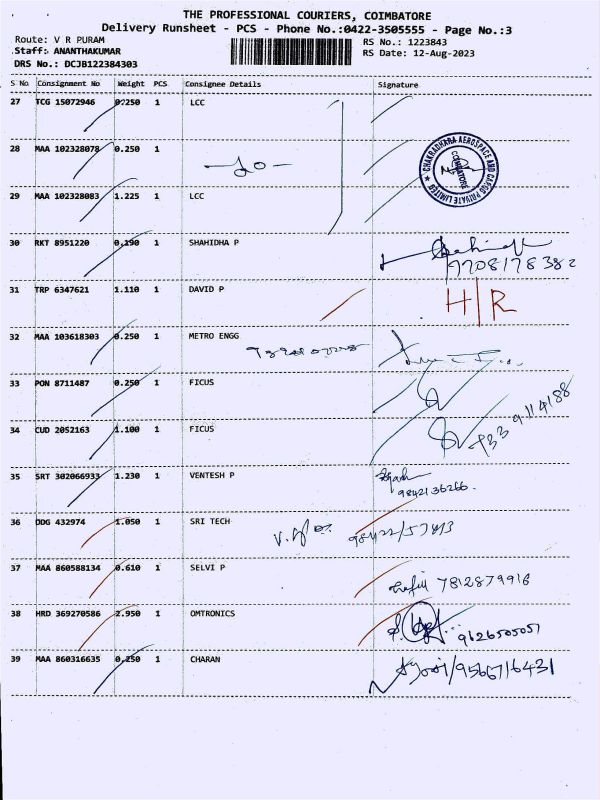 THE PROFESSIONAL COURIERS, COIMBATORE
Delivery Runsheet - PCS - Phone No.:0422-3505555 - Page No.:3
Route: V R PURAM
RS No.: 1223843
Staff: ANANTHAKUMAR
RS Date: 12-Aug-2023
DRS No.: DCJB122384303
S No Consignment No Weight PCS Consignee Details Signature
27 TCG 15072946 0.250 1 LCC
28 MAA 102328078 0.250 1
CHAKRADHARA AEROSPACE AND CARGO PRIVATE LIMITED
COIMBATORE
29 MAA 102328083 1.225 1 LCC
30 RKT 8951220 0.190 1 SHAHIDHA P
9708178382
31 TRP 6347621 1.110 1 DAVID P H/R
32 MAA 103618303 0.250 1 METRO ENGG
33 PON 8711487 0.250 1 FICUS
34 CUD 2052163 1.100 1 FICUS
35 SRT 302066933 1.230 1 VENTESH P
9842136266
36 DDG 432974 1.050 1 SRI TECH
37 MAA 860588134 0.610 1 SELVI P 7812879916
38 HRD 369270586 2.950 1 OMTRONICS 9626505051
39 MAA 860316635 0.250 1 CHARAN /9566716431